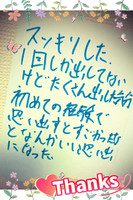 スッキリした、
1回しか出してない
けどたくさん出した分
初めての経験で
思い出すとすごかった
となんかいい思い出
になった。
Thanks